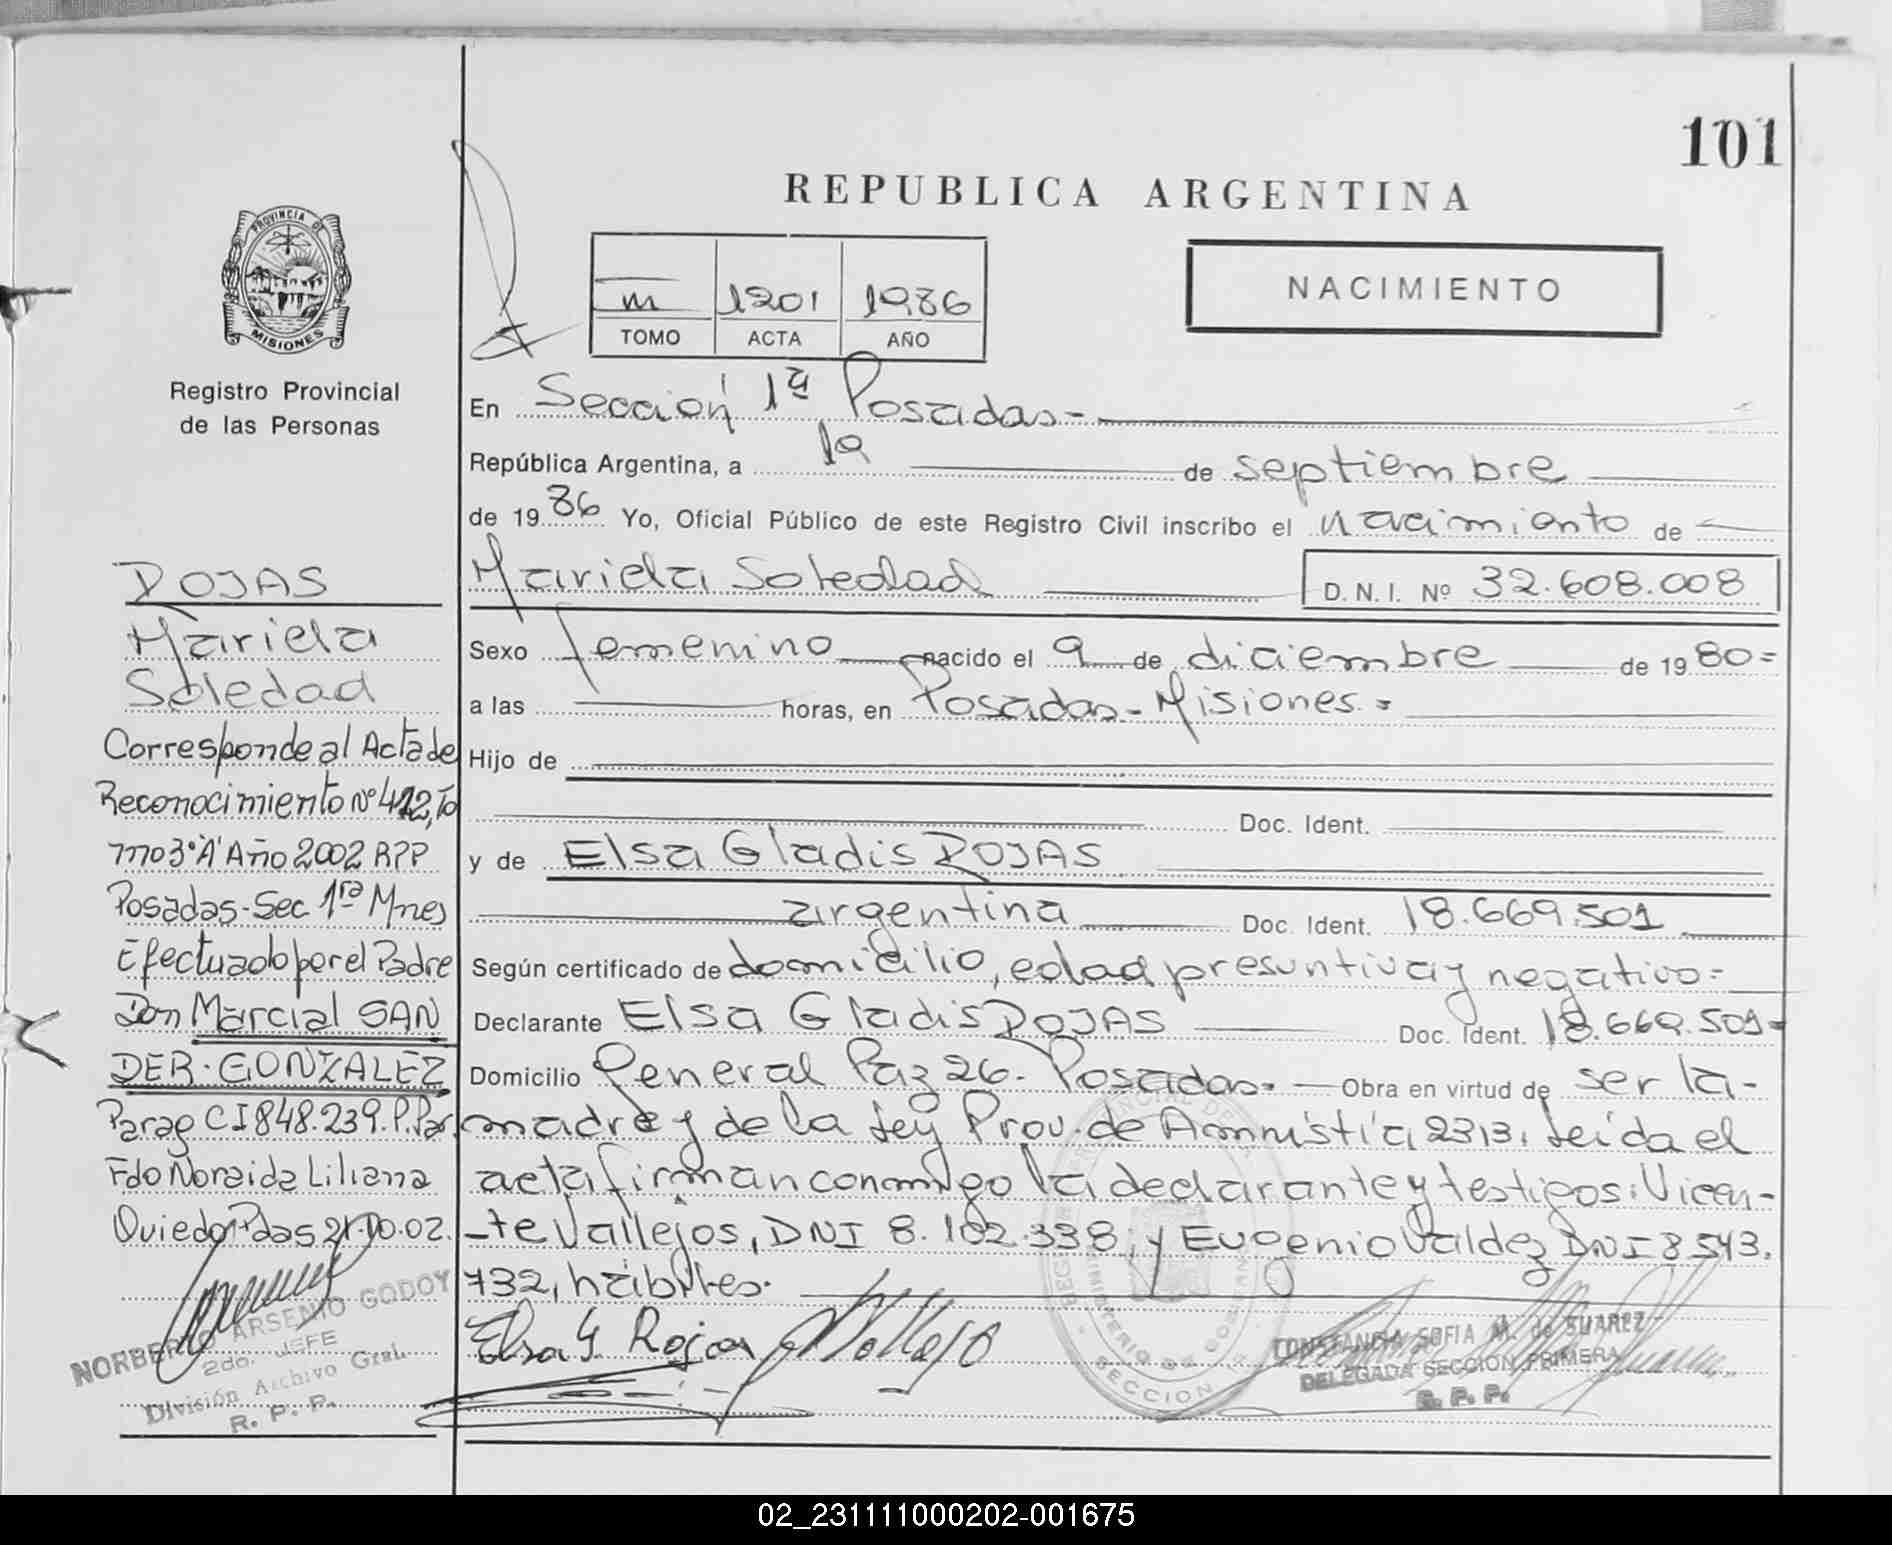 101
REPUBLICA ARGENTINA
PROVINCIA DE
MISIONES
Registro Provincial
de las Personas
NACIMIENTO
m 1201 1986
TOMO ACTA AÑO
En Sección 1ª Posadas=
República Argentina, a 19 de septiembre
de 1986 Yo, Oficial Público de este Registro Civil inscribo el nacimiento de
Mariela Soledad D. N. I. Nº 32.608.008
Sexo femenino nacido el 9 de diciembre de 1980=
a las horas, en Posadas-Misiones.=
Hijo de
Doc. Ident.
y de Elsa Gladis ROJAS
argentina Doc. Ident. 18.669.501
Según certificado de domicilio, edad presuntiva y negativo=
Declarante Elsa Gladis ROJAS Doc. Ident. 18.669.501=
Domicilio General Paz 26- Posadas= Obra en virtud de ser la-
madre y de la Ley Prov. de Amnistía 2313. Leida el
acta firman conmigo la declarante y testigos: Vicen-
-te Vallejos, DNI 8.102.338, y Eugenio Valdez DNI 8543.
732, hábiles.
Elsa G Rojas
ROJAS
Mariela
Soledad
Corresponde al Acta de
Reconocimiento Nº 412, To
mo 3º "A" Año 2002 RPP
Posadas-Sec 1ra Mnes
Efectuado por el Padre
Don Marcial SAN
DER·GONZALEZ
Parag CI 848.239.P.Par.
Fdo Noraida Liliana
Oviedo Pdas 21.10.02.
NORBERTO ARSENIO GODOY
2do. JEFE
División Archivo Gral.
R. P. P.
CONSTANCIA SOFIA M. de SUAREZ
DELEGADA SECCION PRIMERA
R. P. P.
02_231111000202-001675